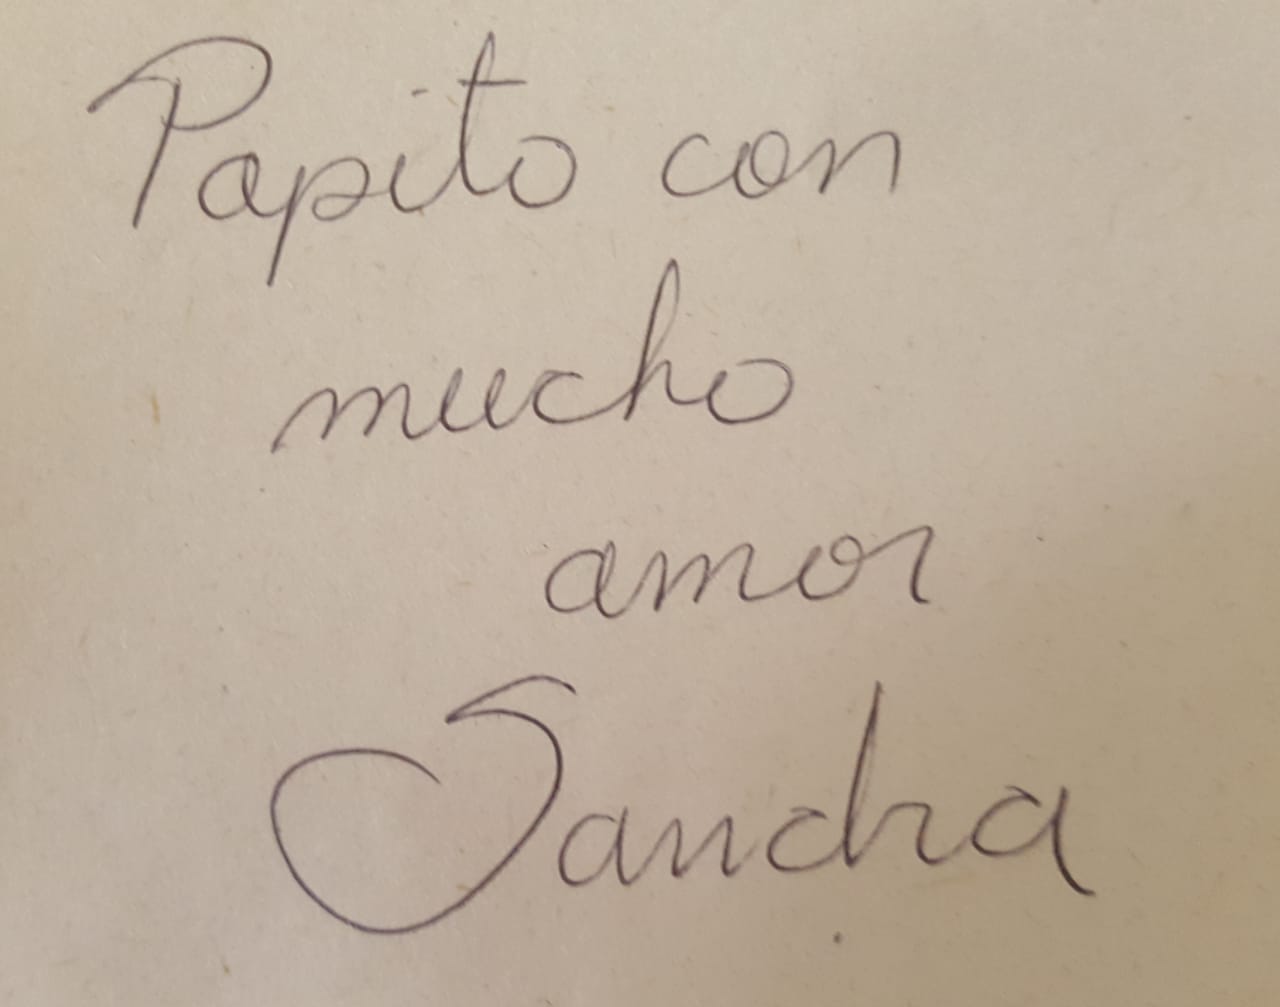 Papito con
mucho
amor
Sandra